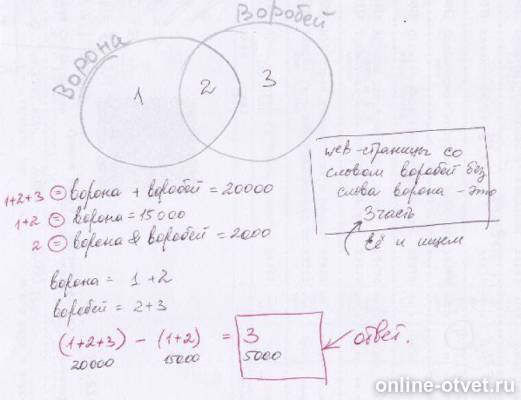 Ворона
Воробей
1
2
3
web-страницы со
словом воробей без
слова ворона - это
3 часть
её и ищем
1+2+3 = ворона + воробей = 20000
1+2 = ворона = 15000
2 = ворона & воробей = 2000
ворона = 1+2
воробей = 2+3
(1+2+3) - (1+2) = 3
20000 15000 5000
ответ.
online-otvet.ru